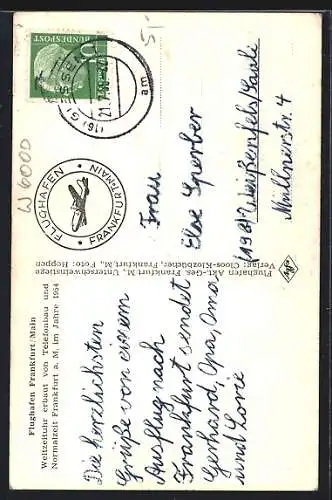 Flughafen Frankfurt/Main
Weltzeituhr erbaut von Telefonbau und
Normalzeit Frankfurt a. M. im Jahre 1954
Die herzlichsten
Grüße von einem
Ausflug nach
Frankfurt sendet
Gerhard, Opa, Oma,
und Lorie
Flughafen Akt.-Ges. Frankfurt M., Unterschweinstiege
Verlag: Cloos-Klotzbücher, Frankfurt, M., Foto: Heppen
W 6000
FLUGHAFEN
FRANKFURT-MAIN
DEUTSCHE BUNDESPOST
10
(16) GIESSEN
am
5,-
Frau
Else Sperber
(19a) Weißenfels/Saale
Müllnerstr. 4
Agfa